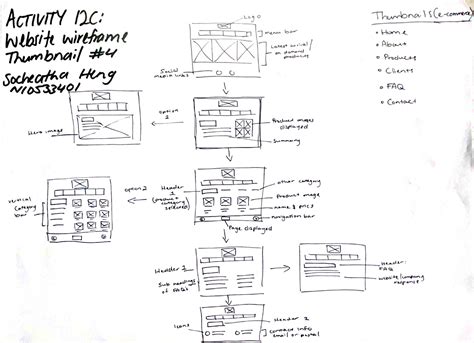 ACTIVITY 12C:
Website wireframe
Thumbnail #4
Socheatha Heng
N10533401
Logo
menu bar
Latest arrival/
on demand
products
Social
media links
Thumbnails (e-commerce)
• Home
• About
• Products
• Clients
• FAQ
• Contact
Hero image
option 2
Product images
displayed
Summary
vertical
category
bar
option 2
Header
1
(product
category
selected)
other category
Product image
name & price
navigation bar
Page displayed
Header 2
Sub headings
of FAQs
Header:
FAQ
website/company
response
Icons
Header 2
contact info:
email or postal